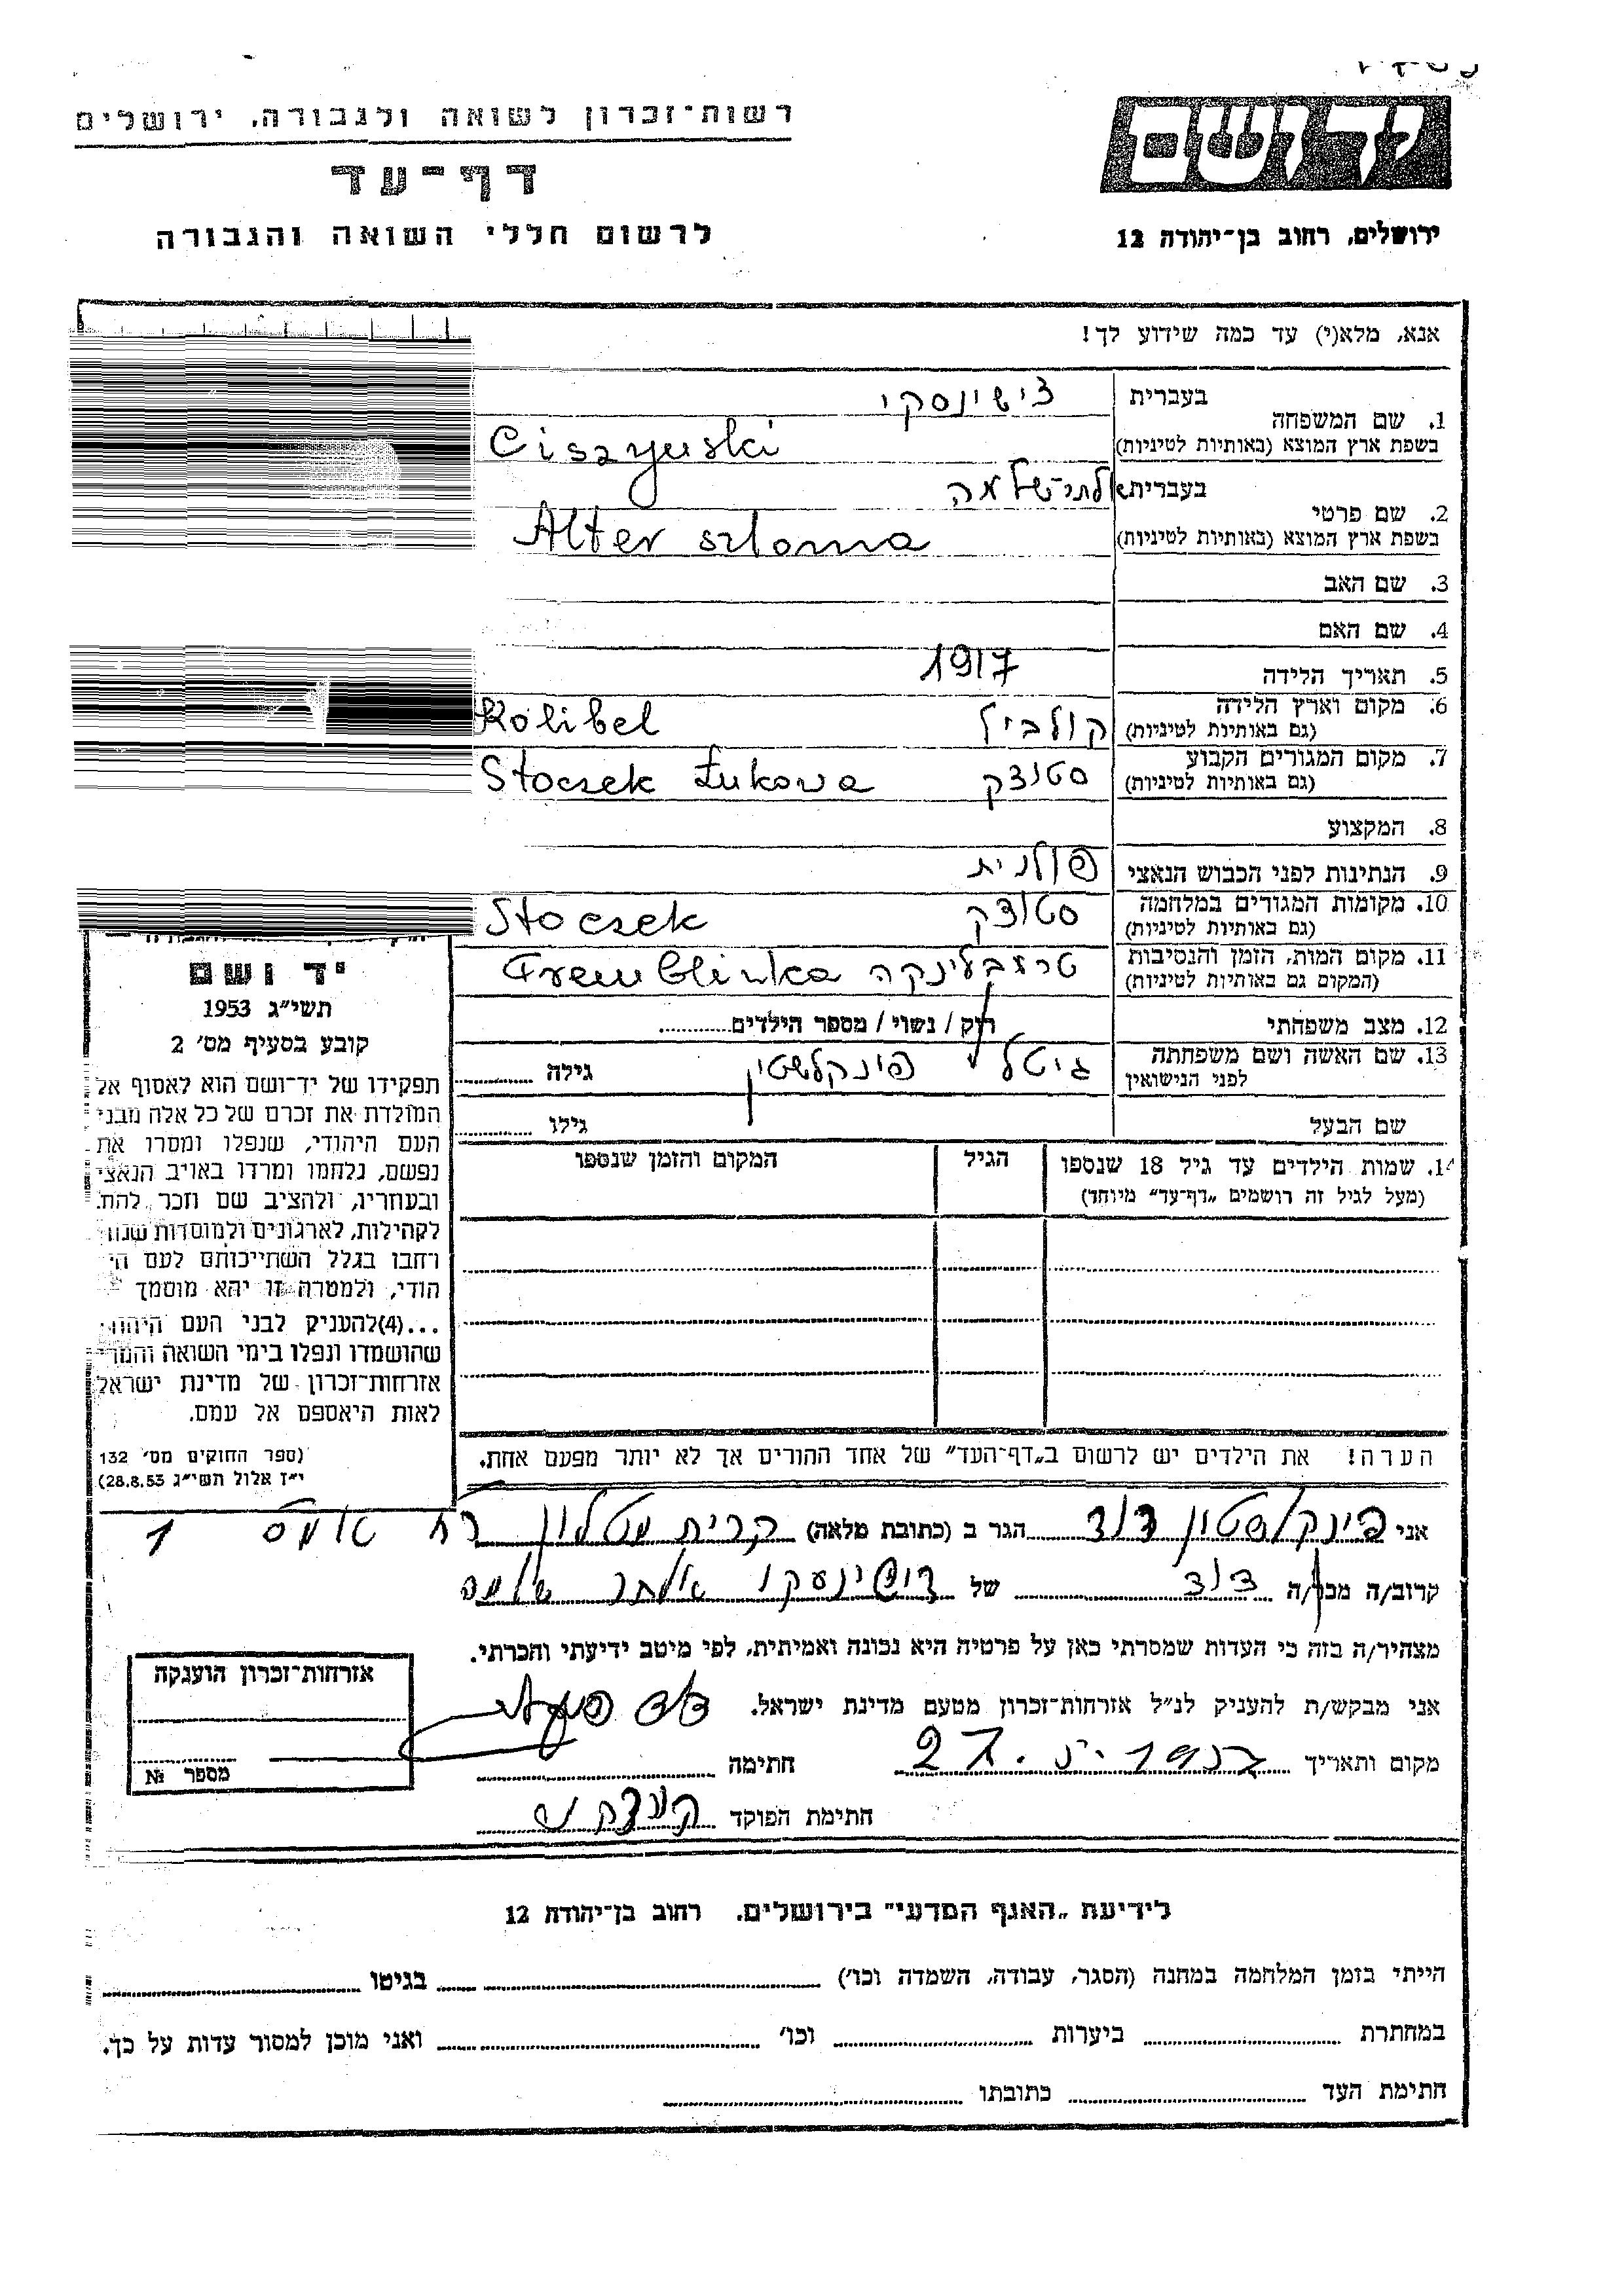 רשות-זכרון לשואה ולגבורה, ירושלים
דף-עד
לרשום חללי השואה והגבורה
יד ושם
ירושלים, רחוב בן-יהודה 12
אנא, מלא(י) עד כמה שידוע לך!
1. שם המשפחה
בעברית צישינסקי
בשפת ארץ המוצא (באותיות לטיניות) Ciszynski
2. שם פרטי
בעברית
בשפת ארץ המוצא (באותיות לטיניות) Alter szloma
3. שם האב
4. שם האם
5. תאריך הלידה 1917
6. מקום וארץ הלידה
(גם באותיות לטיניות) קולביל Kolibel
7. מקום המגורים הקבוע
(גם באותיות לטיניות) סטוצק Stoczek Łukowa
8. המקצוע
9. הנתינות לפני הכבוש הנאצי פולנית
10. מקומות המגורים במלחמה
(גם באותיות לטיניות) סטוצק Stoczek
11. מקום המות, הזמן והנסיבות
(המקום גם באותיות לטיניות) טרעבלינקה Tremblinka
12. מצב משפחתי רוק / נשוי / מספר הילדים
13. שם האשה ושם משפחתה
לפני הנישואין גיטל פינקלשטין גילה
שם הבעל גילו
14. שמות הילדים עד גיל 18 שנספו
(מעל לגיל זה רושמים "דף-עד" מיוחד)
הגיל
המקום והזמן שנספו
הערה! את הילדים יש לרשום ב"דף-העד" של אחד ההורים אך לא יותר מפעם אחת.
יד ושם
תשי"ג 1953
קובע בסעיף מס' 2
תפקידו של יד-ושם הוא לאסוף אל
המולדת את זכרם של כל אלה מבני
העם היהודי, שנפלו ומסרו את
נפשם, נלחמו ומרדו באויב הנאצי
ובעוזריו, ולהציב שם וזכר להם,
לקהילות, לארגונים ולמוסדות שנח
רחבו בגלל השתייכותם לעם הי
הודי, ולמטרה זו יהא מוסמך
...(4)להעניק לבני העם היהודי
שהושמדו ונפלו בימי השואה והמרי
אזרחות-זכרון של מדינת ישראל
לאות היאספם אל עמם.
(ספר החוקים מס' 132
י"ז אלול תשי"ג 28.8.53)
אני פינקלשטין דוד הגר ב (כתובת מלאה) קרית 1
קרוב/ה מכר/ה דוד של אלתר שלמה
מצהיר/ה בזה כי העדות שמסרתי כאן על פרטיה היא נכונה ואמיתית, לפי מיטב ידיעתי והכרתי.
אני מבקש/ת להעניק לנ"ל אזרחות-זכרון מטעם מדינת ישראל.
מקום ותאריך חתימה
חתימת הפוקד
אזרחות-זכרון הוענקה
מספר №
לידיעת "האגף המדעי" בירושלים, רחוב בן-יהודה 12
הייתי בזמן המלחמה במחנה (הסגר, עבודה, השמדה וכו') בגיטו
במחתרת ביערות וכו' ואני מוכן למסור עדות על כך.
חתימת העד כתובתו